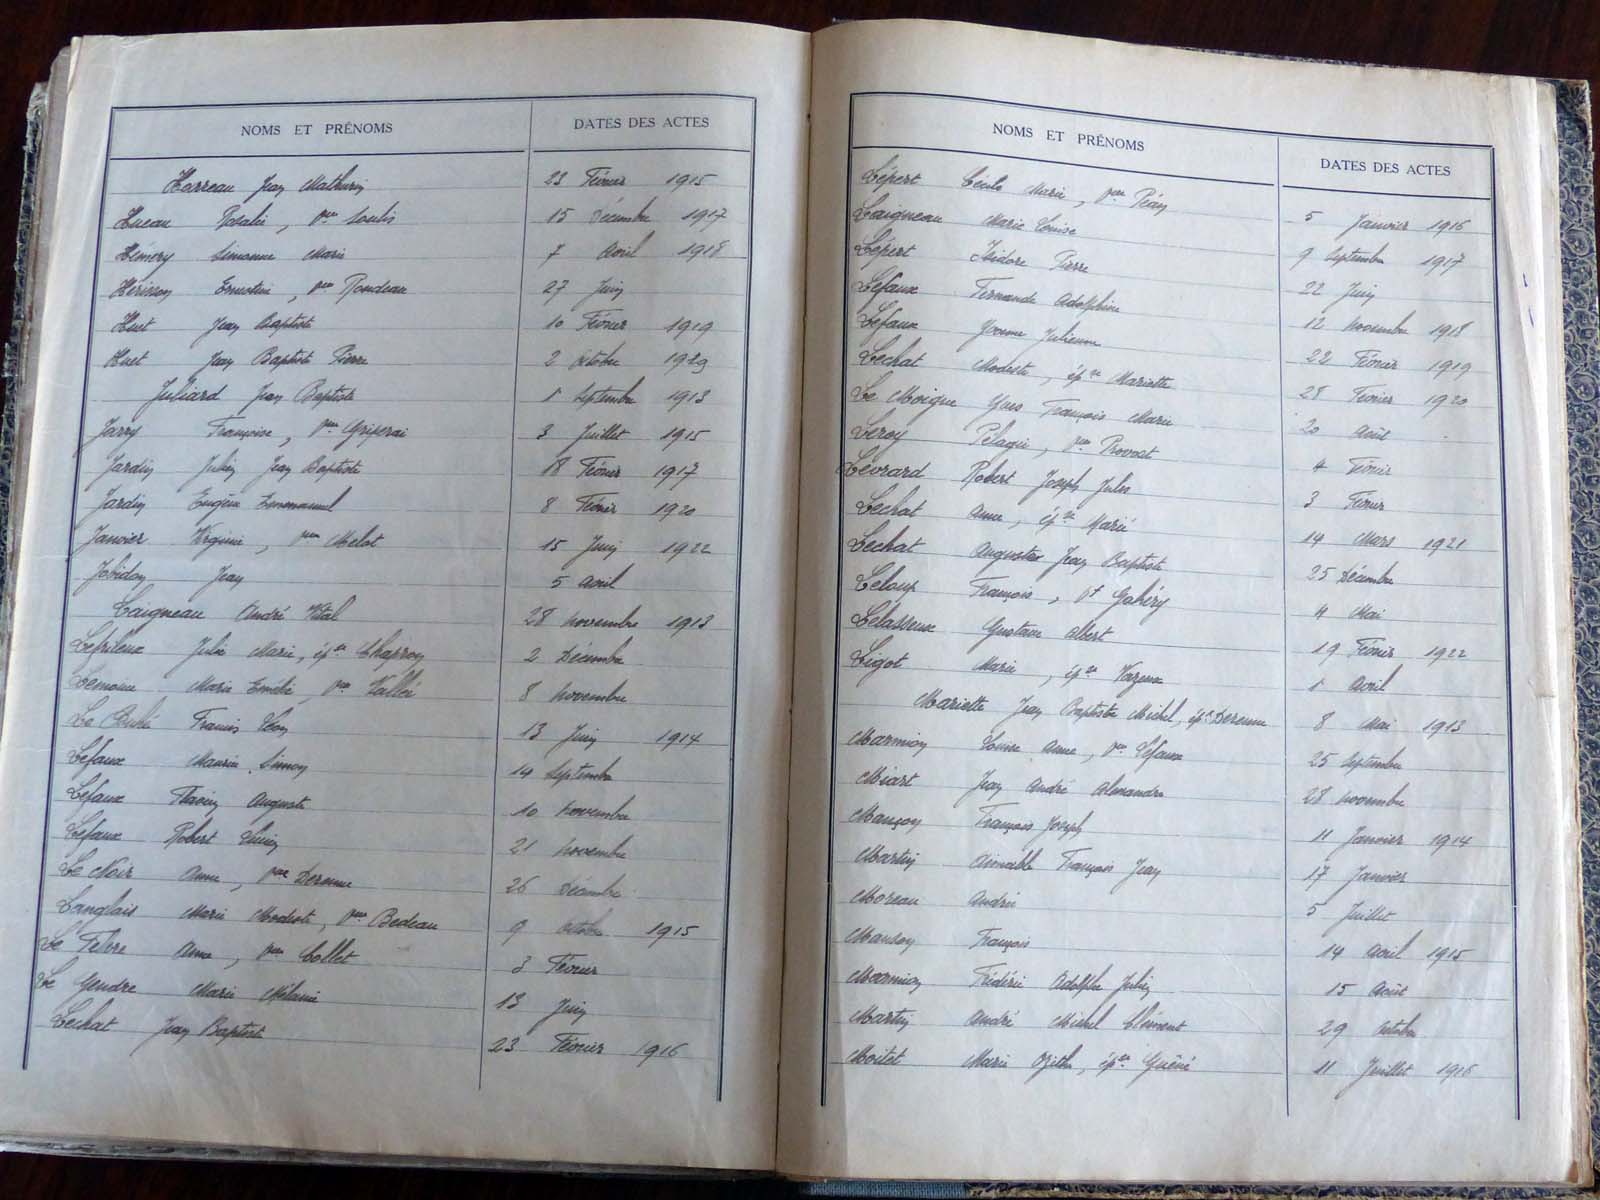 NOMS ET PRÉNOMS DATES DES ACTES
Harreau Jean Mathurin 23 Février 1915
Hueau Rosalie, Vve Soulis 15 Décembre 1917
Hémery Simonne Marie 7 Avril 1918
Hérisson Ernestine, Vve Rondeau 27 Juin
Huet Jean Baptiste 10 Février 1919
Huet Jean Baptiste Pierre 2 Octobre 1929
Juliard Jean Baptiste 1 Septembre 1913
Jarry Françoise, Vve 3 Juillet 1915
Jardin Julien Jean Baptiste 18 Février 1917
Jardin Eugène Emmanuel 8 Février 1920
Janvier Virginie, Vve Melot 15 Juin 1922
Jobidon Jean 5 Avril
Laigneau André Vital 28 Novembre 1913
Lefrileux Julie Marie, épse Chapron 2 Décembre
Lemoine Marie Emélie, Vve Vallée 8 Novembre
Le Francis Léon 13 Juin 1914
Lefaux Maurice Simon 14 Septembre
Lefaux Flavien Auguste 10 Novembre
Lefaux Robert Lucien 21 Novembre
Le Noir Anne, Vve Derenne 26 Décembre
Langlais Marie Modeste, Vve Bedeau 9 Octobre 1915
Le Febvre Anne, Vve Collet 3 Février
Le Gendre Marie Mélanie 13 Juin
Lechat Jean Baptiste 23 Février 1916
NOMS ET PRÉNOMS DATES DES ACTES
Lépert Cécile Marie, Vve Péan 5 Janvier 1916
Laigneau Marie Louise 9 Septembre 1917
Lépert Isidore Pierre 22 Juin
Lefaux Fernande Adolphine 12 Novembre 1918
Lefaux Yvonne Julienne 22 Février 1919
Lechat Modeste, épse Mariette 28 Février 1920
Le Moigne Yves François Marie 20 Août
Leroy Pélagie, Vve Provost 4 Février
Levrard Robert Joseph Jules 3 Février
Lechat Anne, épse Marié 14 Mars 1921
Lechat Auguste Jean Baptiste 25 Décembre
Leloup François, Vf Gahéry 4 Mai
Lelasseux Gustave Albert 19 Février 1922
Ligot Marie, épse Vazeux 1 Avril
Mariette Jean Baptiste Michel, épx Derenne 8 Mai 1913
Marmion Louise Anne, Vve Lefaux 25 Septembre
Miart Jean André Alexandre 28 Novembre
Mançon François Joseph 11 Janvier 1914
Martin Aimable François Jean 17 Janvier
Moreau André 5 Juillet
Manson François 14 Avril 1915
Marmion Frédéric Adolphe Julien 15 Août
Martin André Michel Clément 29 Octobre
Moitet Marie Ozithe, épse Guéné 11 Juillet 1916